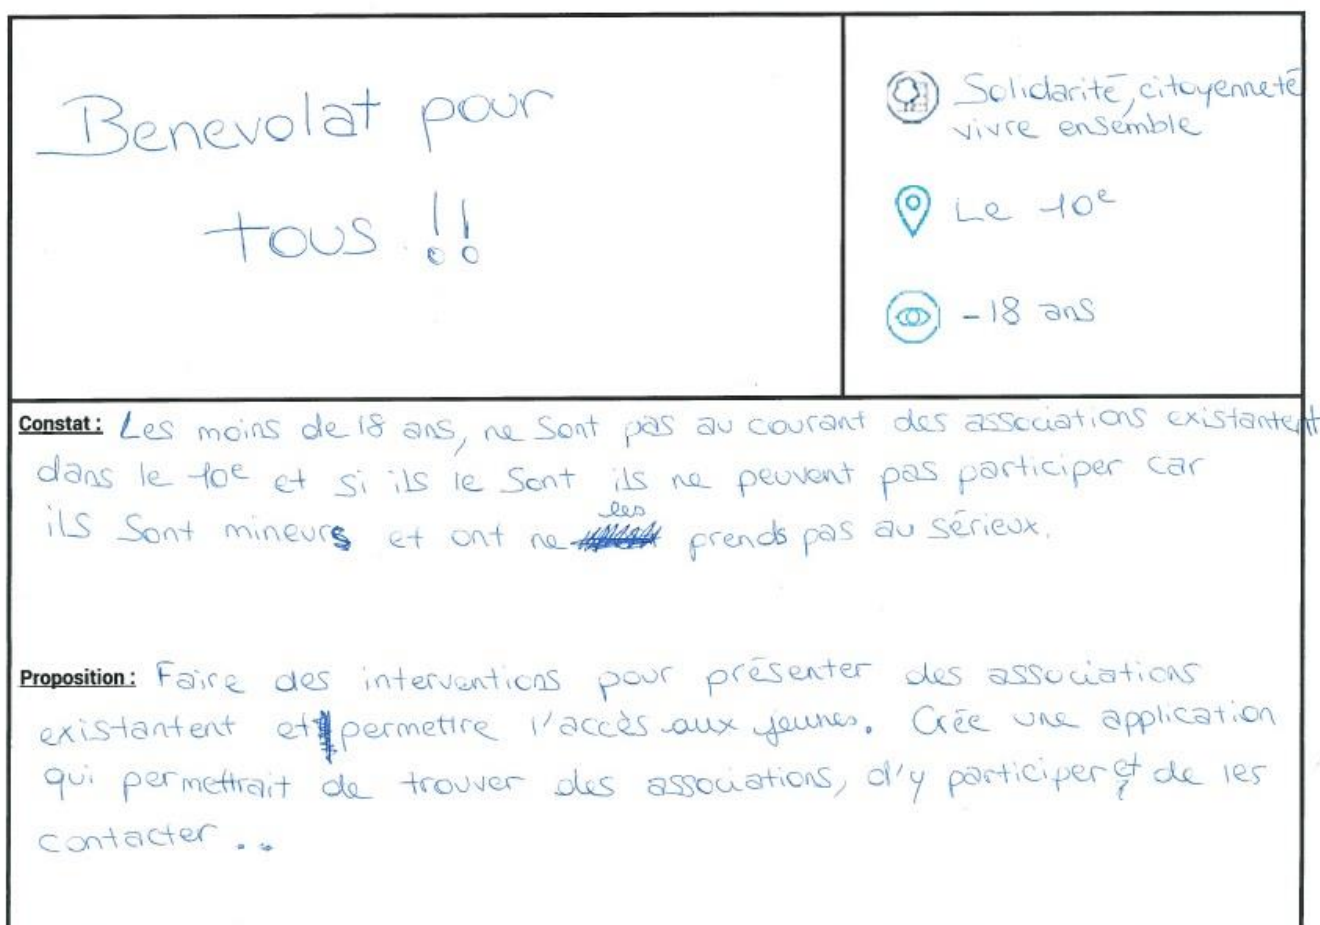 Benevolat pour
tous !!
Solidarité, citoyenneté
vivre ensemble
Le 10e
-18 ans
Constat : Les moins de 18 ans, ne sont pas au courant des associations existantent
dans le 10e et si ils le sont ils ne peuvent pas participer car
ils sont mineurs et ont ne les prends pas au sérieux.
Proposition : Faire des interventions pour présenter des associations
existantent et permettre l'accès aux jeunes. Crée une application
qui permettrait de trouver des associations, d'y participer et de les
contacter ..